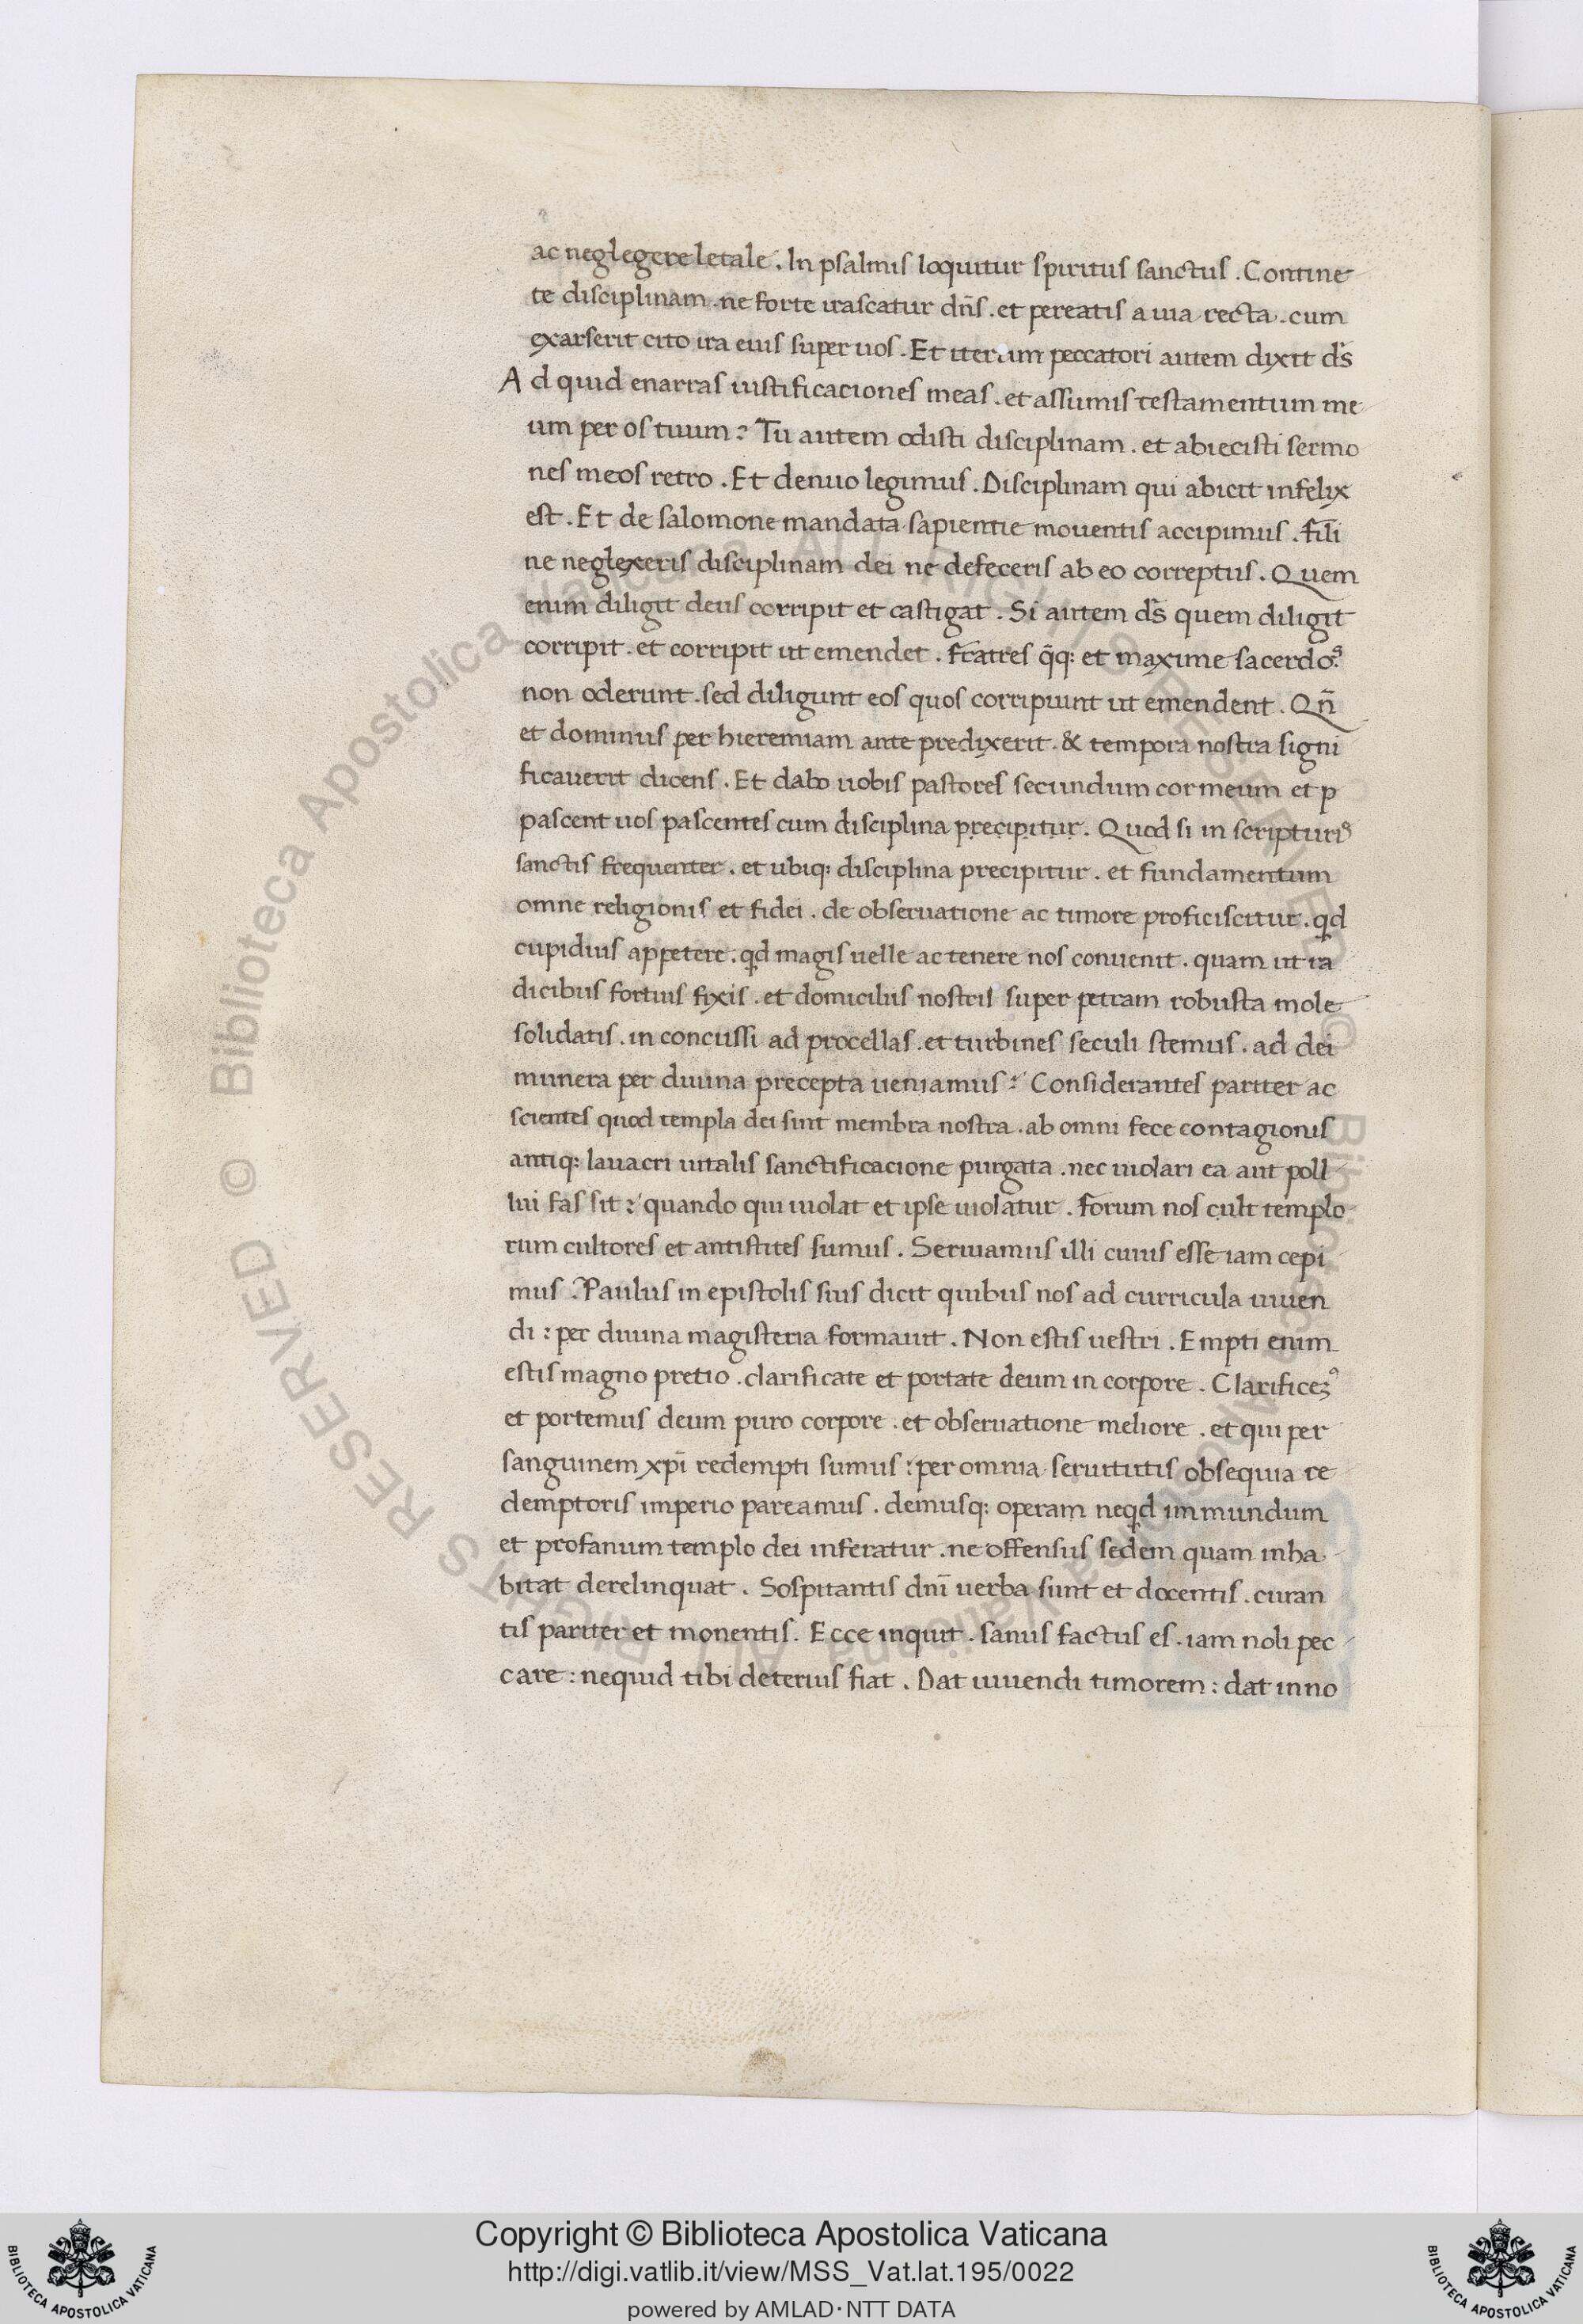 ac neglegere letale. In psalmis loquitur spiritus sanctus. Contine
te disciplinam. ne forte irascatur dn̄s. et pereatis a uia recta. cum
exarserit cito ira eius super uos. Et iterum peccatori autem dixit ds̄
Ad quid enarras iustificaciones meas. et assumis testamentum me
um per os tuum? Tu autem odisti disciplinam. et abiecisti sermo
nes meos retro. Et denuo legimus. Disciplinam qui abicit infelix
est. Et de salomone mandata sapientie mouentis accipimus. fili
ne neglexeris disciplinam dei ne defeceris ab eo correptus. Quem
enim diligit deus corripit et castigat. Si autem ds̄ quem diligit
corripit. et corripit ut emendet. fratres q̄q: et maxime sacerdo
non oderunt. sed diligunt eos quos corripiunt ut emendent. Qn̄
et dominus per hieremiam ante predixerit. & tempora nostra signi
ficauerit dicens. Et dabo uobis pastores secundum cor meum et p
pascent uos pascentes cum disciplina precipitur. Quod si in scripturis
sanctis frequenter. et ubiq: disciplina precipitur. et fundamentum
omne religionis et fidei. de obseruatione ac timore proficiscitur. qd
cupidius appetere. qd magis uelle ac tenere nos conuenit. quam ut ra
dicibus fortius fixis. et domiciliis nostris super petram robusta mole
solidatis. in concussi ad procellas. et turbines seculi stemus. ad dei
munera per diuina precepta ueniamus? Considerantes pariter ac
scientes quod templa dei sint membra nostra. ab omni fece contagionis
antiq: lauacri uitalis sanctificacione purgata. nec uiolari ea aut poll
lui fas sit? quando qui uiolat et ipse uiolatur. forum nos cult templo
rum cultores et antistites sumus. Seruiamus illi cuius esse iam cepi
mus. Paulus in epistolis suis dicit quibus nos ad curricula uiuen
di: per diuina magisteria formauit. Non estis uestri. Empti enim
estis magno pretio. clarificate et portate deum in corpore. Clarificeꝫ
et portemus deum puro corpore. et obseruatione meliore. et qui per
sanguinem xpī redempti sumus: per omnia seruitutis obsequia re
demptoris imperio pareamus. demusq: operam neqd immundum
et profanum templo dei inferatur. ne offensus sedem quam inha
bitat derelinquat. Sospitantis dnī uerba sunt et docentis. curan
tis pariter et monentis. Ecce inquit. sanus factus es. iam noli pec
care: nequid tibi deterius fiat. Dat uiuendi timorem: dat inno
© Biblioteca Apostolica Vaticana ALL RIGHTS RESERVED
© Biblioteca Apostolica Vaticana ALL RIGHTS RESERVED
Copyright © Biblioteca Apostolica Vaticana
http://digi.vatlib.it/view/MSS_Vat.lat.195/0022
powered by AMLAD·NTT DATA
BIBLIOTECA APOSTOLICA VATICANA
BIBLIOTECA APOSTOLICA VATICANA